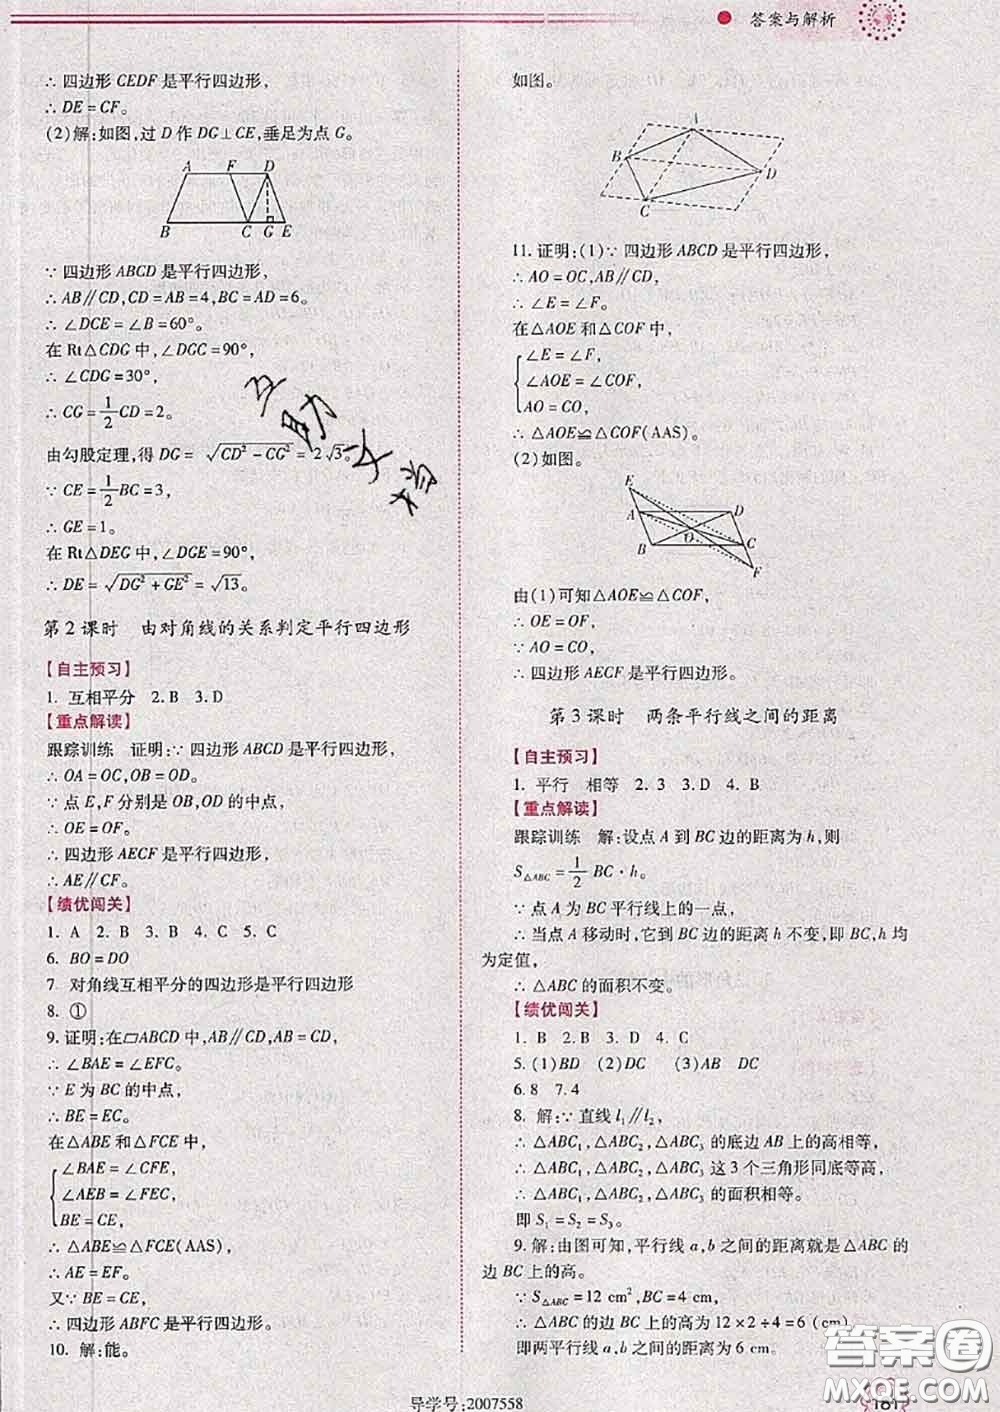 答案与解析
∴ 四边形 CEDF 是平行四边形，
∴ DE = CF。
(2)解:如图,过 D 作 DG⊥CE,垂足为点 G。
A F D
B C G E
∵ 四边形 ABCD 是平行四边形，
∴ AB∥CD,CD=AB=4,BC=AD=6。
∴ ∠DCE=∠B=60°。
在 Rt△CDG 中,∠DGC=90°,
∴ ∠CDG=30°,
∴ CG=1/2CD=2。
由勾股定理,得 DG=√(CD²-CG²)=2√3。
∵ CE=1/2BC=3,
∴ GE=1。
在 Rt△DEG 中,∠DGE=90°,
∴ DE=√(DG²+GE²)=√13。
第 2 课时 由对角线的关系判定平行四边形
【自主预习】
1. 互相平分 2. B 3. D
【重点解读】
跟踪训练 证明:∵ 四边形 ABCD 是平行四边形，
∴ OA=OC,OB=OD。
∵ 点 E,F 分别是 OB,OD 的中点，
∴ OE=OF。
∴ 四边形 AECF 是平行四边形，
∴ AE∥CF。
【绩优闯关】
1. A 2. B 3. B 4. C 5. C
6. BO=DO
7. 对角线互相平分的四边形是平行四边形
8. ①
9. 证明:在▱ABCD 中,AB∥CD,AB=CD,
∴ ∠BAE=∠EFC。
∵ E 为 BC 的中点，
∴ BE=EC。
在△ABE 和△FCE 中，
∠BAE=∠CFE,
∠AEB=∠FEC,
BE=CE,
∴ △ABE≌△FCE(AAS)。
∴ AE=EF。
又∵ BE=CE,
∴ 四边形 ABFC 是平行四边形。
10. 解:能。
如图。
A
B
D
C
11. 证明:(1)∵ 四边形 ABCD 是平行四边形，
∴ AO=OC,AB∥CD,
∴ ∠E=∠F。
在△AOE 和△COF 中，
∠E=∠F,
∠AOE=∠COF,
AO=CO,
∴ △AOE≌△COF(AAS)。
(2)如图。
E
A D
O
B C
F
由(1)可知△AOE≌△COF,
∴ OE=OF,
∵ AO=CO,
∴ 四边形 AECF 是平行四边形。
第 3 课时 两条平行线之间的距离
【自主预习】
1. 平行 相等 2. 3 3. D 4. B
【重点解读】
跟踪训练 解:设点 A 到 BC 边的距离为 h,则
S△ABC=1/2 BC·h。
∵ 点 A 为 BC 平行线上的一点，
∴ 当点 A 移动时,它到 BC 边的距离 h 不变,即 BC,h 均
为定值，
∴ △ABC 的面积不变。
【绩优闯关】
1. B 2. B 3. D 4. C
5. (1)BD (2)DC (3)AB DC
6. 8 7. 4
8. 解:∵ 直线 l₁∥l₂,
∴ △ABC₁,△ABC₂,△ABC₃ 的底边 AB 上的高相等，
∴ △ABC₁,△ABC₂,△ABC₃ 这 3 个三角形同底等高，
∴ △ABC₁,△ABC₂,△ABC₃ 的面积相等。
即 S₁=S₂=S₃。
9. 解:由图可知,平行线 a,b 之间的距离就是△ABC 的
边 BC 上的高。
∵ S△ABC=12 cm²,BC=4 cm,
∴ △ABC 的边 BC 上的高为 12×2÷4=6 (cm)
即两平行线 a,b 之间的距离为 6 cm。
互助文档
答案圈
MXQE.COM
导学号:2007558
161